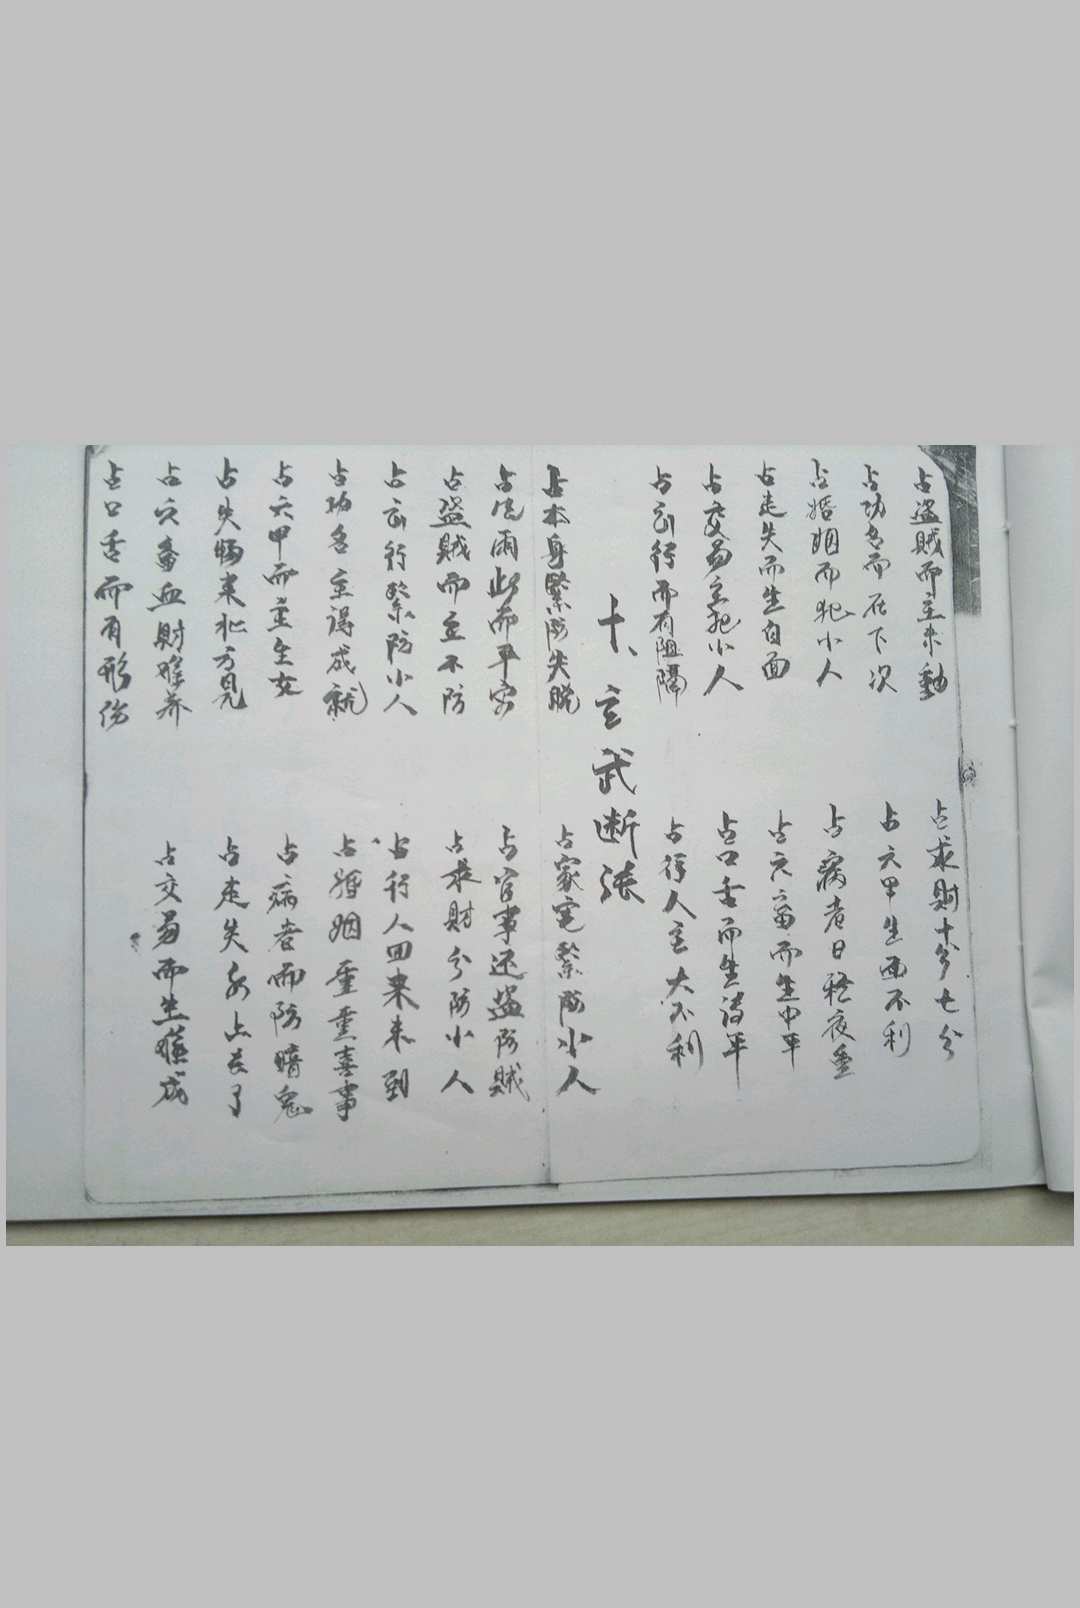 占盗賊而主未動
占求財十分七分
占功名而在下次
占六甲生面不利
占婚姻而犯小人
占病者日輕夜重
占走失而生自面
占六畜而生中平
占交易主犯小人
占口舌而生詩平
占出行而有阻隔
占行人主大不利
十、玄武断法
占本身緊防失脱
占家宅緊防小人
占風雨此而平安
占官事还盗防賊
占盗賊而主不防
占求財分防小人
占出行緊防小人
占行人回来未到
占功名主得成就
占婚姻重重喜事
占六甲而主生女
占病者而防暗鬼
占失物来北方見
占走失永上去了
占六畜血財难养
占交易而生难成
占口舌而有形伤